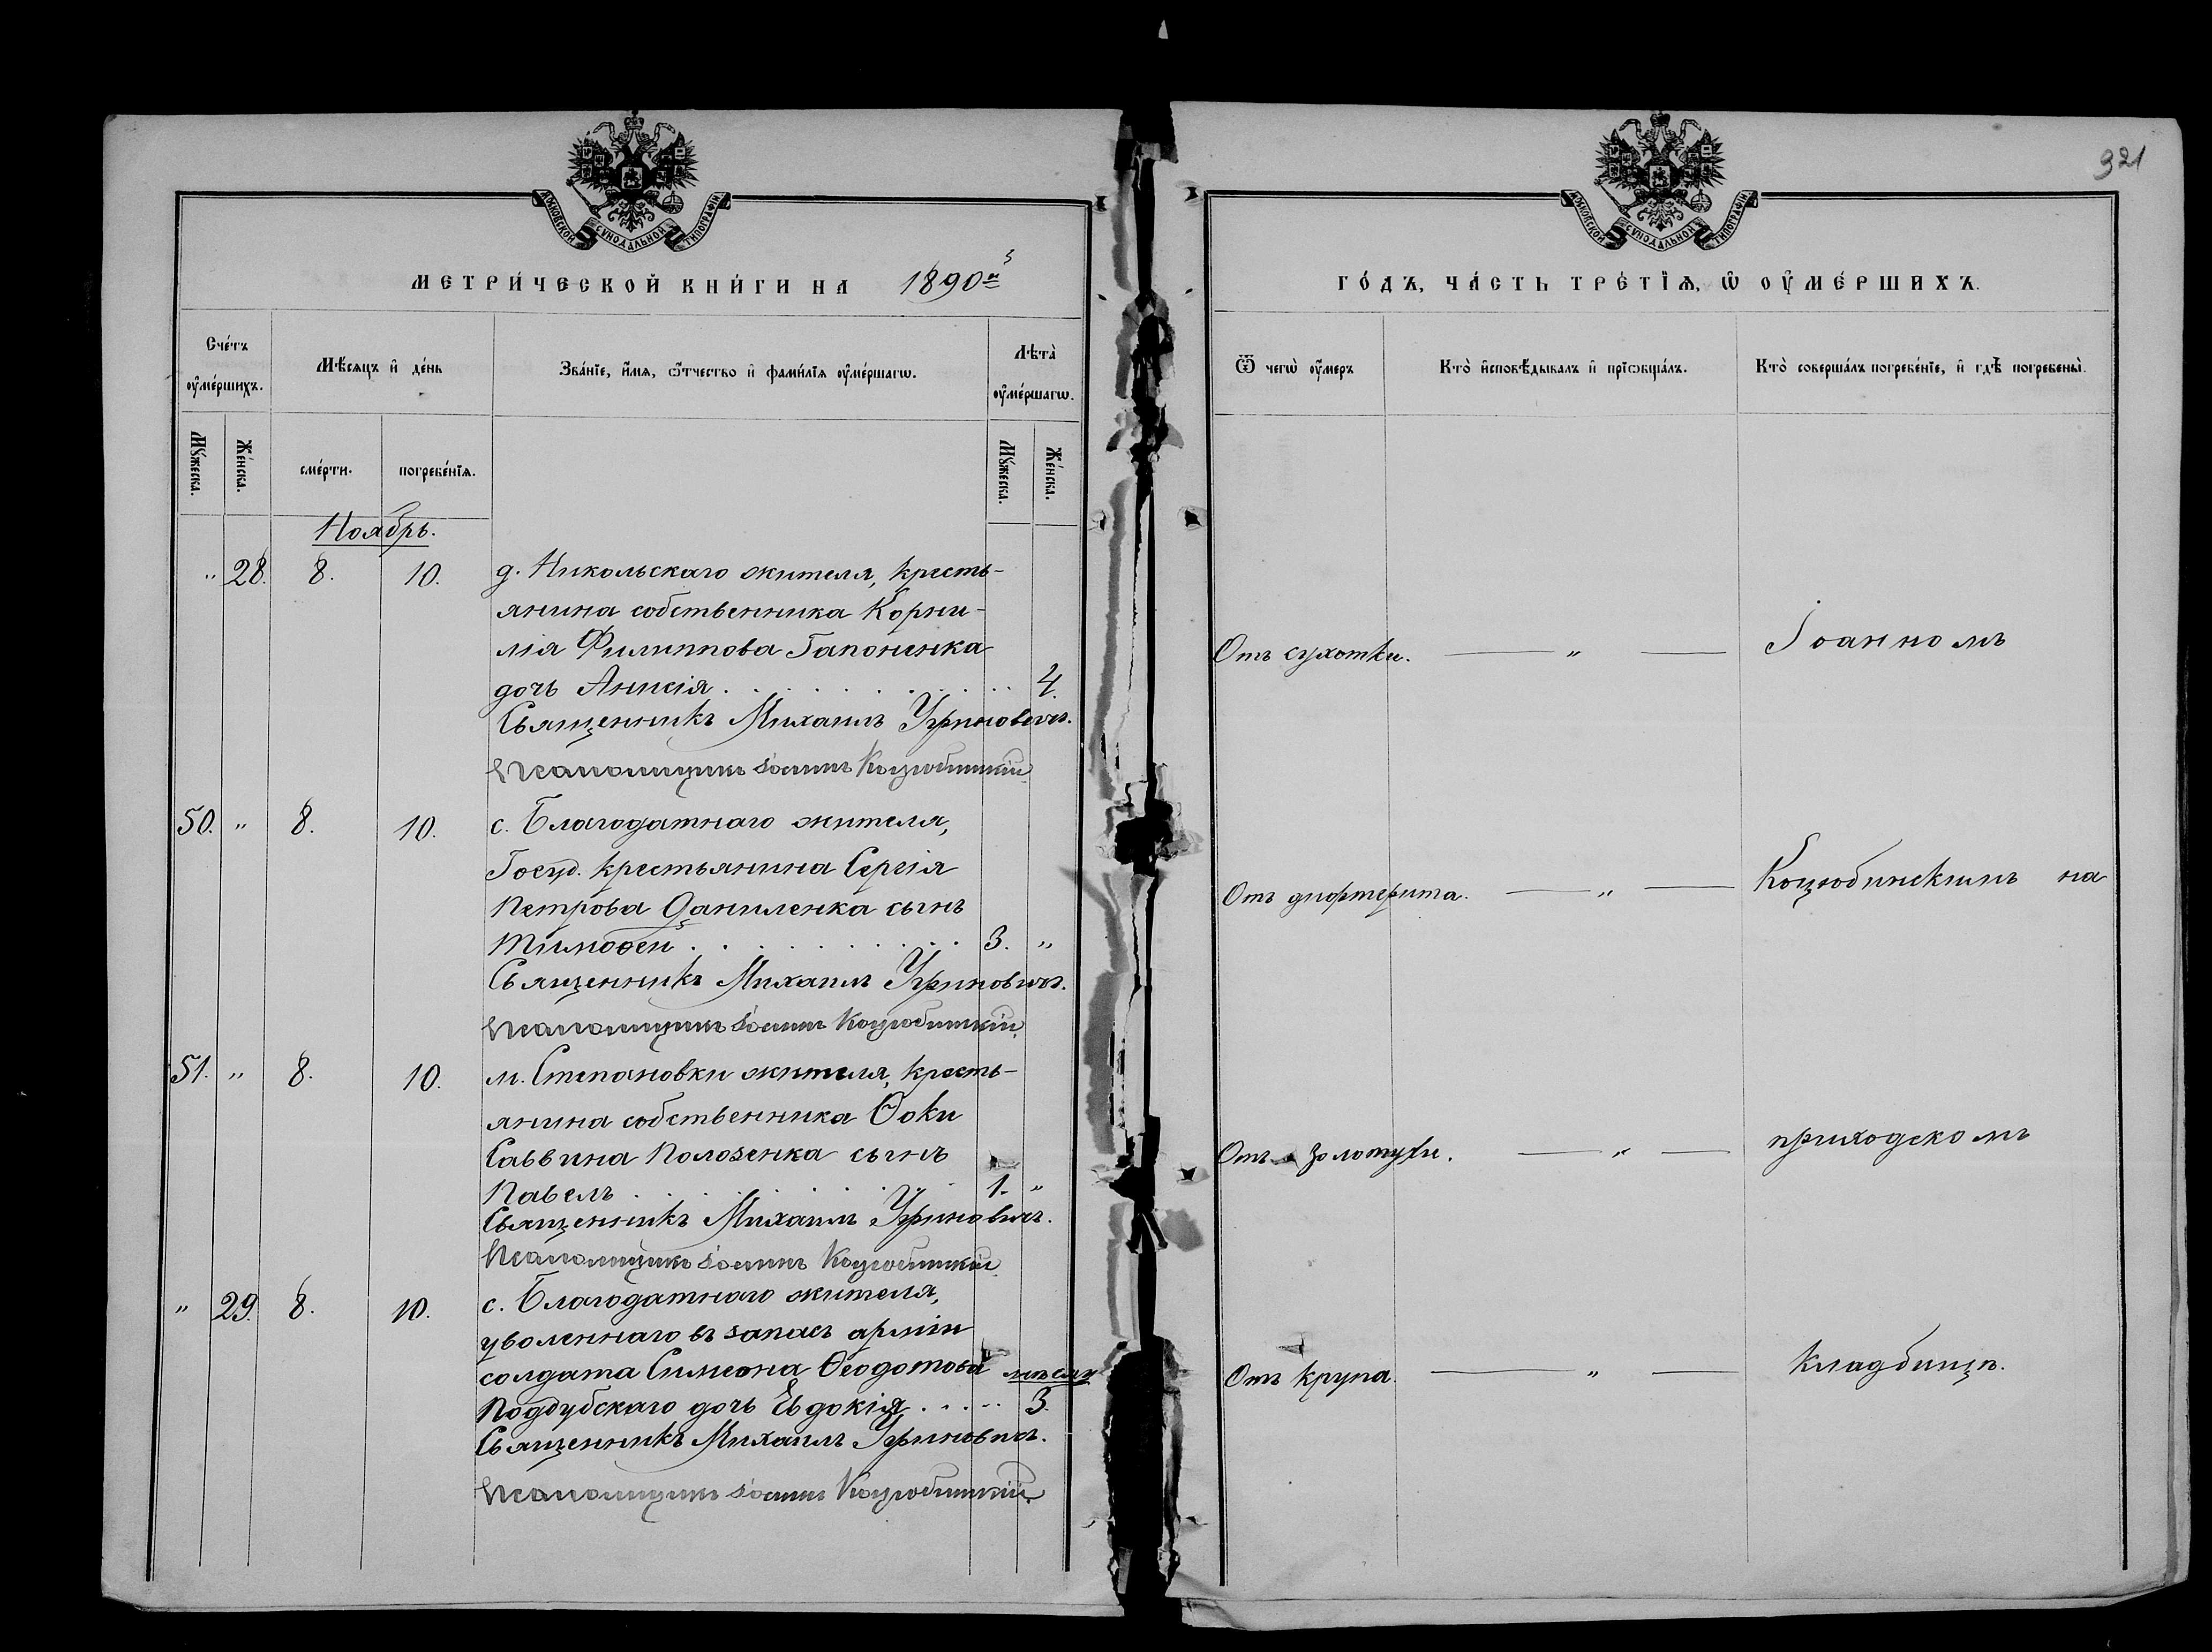 МОСКОВСКОЙ СѴНОДАЛЬНОЙ ТИПОГРАФІИ
МЕТРИ́ЧЕСКОЙ КНИ́ГИ НА 1890й
Сче́тъ ᲂу҆ме́ршихъ.
Мѣ́сяцъ и҆ де́нь
Зва́нїе, и҆́мѧ, ѻ҆́тчество и҆ фами́лїѧ ᲂу҆ме́ршагѡ.
Лѣ́та ᲂу҆ме́ршагѡ.
Мꙋ́жеска.
Же́нска.
сме́рти.
погребе́нїѧ.
Мꙋ́жеска.
Же́нска.
Ноябрь.
" 28. 8. 10. д. Никольскаго жителя, кресть-
янина собственника Корни-
лія Филиппова Гапоненка
дочь Анисія . . . . . . . . . 4.
Священникъ Михаилъ Угриновичъ.
Псаломщикъ Іоаннъ Коцюбинскій
50. " 8. 10. с. Благодатнаго жителя,
Госуд. крестьянина Сергія
Петрова Даниленка сынъ
Тимоѳей . . . . . . . . . 3. "
Священникъ Михаилъ Угриновичъ.
Псаломщикъ Іоаннъ Коцюбинскій
51. " 8. 10. м. Степановки жителя, кресть-
янина собственника Ѳоки
Саввина Полозенка сынъ
Павелъ . . . . . . . . 1. "
Священникъ Михаилъ Угриновичъ.
Псаломщикъ Іоаннъ Коцюбинскій
" 29. 8. 10. с. Благодатнаго жителя,
уволеннаго въ запасъ арміи
солдата Симеона Ѳеодотова мѣсяц
Поддубскаго дочь Евдокія . . . . . 3.
Священникъ Михаилъ Угриновичъ.
Псаломщикъ Іоаннъ Коцюбинскій
321
МОСКОВСКОЙ СѴНОДАЛЬНОЙ ТИПОГРАФІИ
ГО́ДЪ, ЧА́СТЬ ТРЕ́ТЇѦ, Ѡ҆ ОУ҆МЕ́РШИХЪ.
Ѿ чегѡ̀ ᲂу҆́меръ
Кто̀ и҆сповѣ́дывалъ и҆ прїѡбща́лъ.
Кто̀ соверша́лъ погребе́нїе, и҆ гдѣ̀ погребены̀.
Отъ сухотки. — " — Іоанномъ
Отъ дифтерита. — " — Коцюбинскимъ на
Отъ золотухи. — " — приходскомъ
Отъ крупа. — " — кладбищѣ.